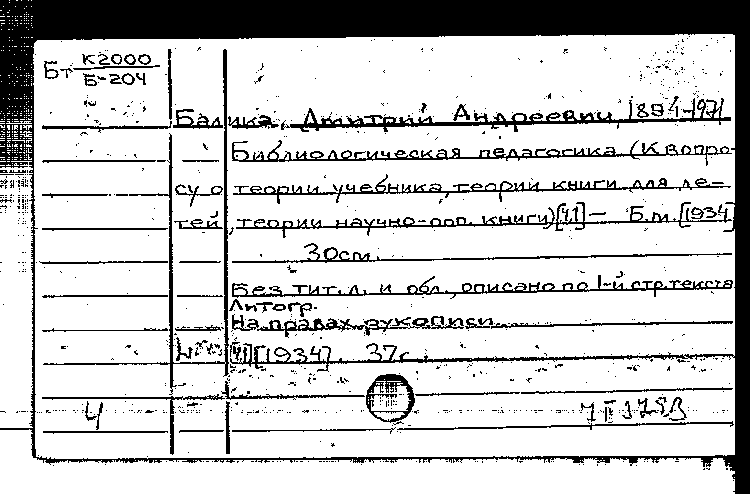 Бт К2000
Б-204
Балика, Дмитрий Андреевич, 1894-1971
Библиологическая педагогика (К вопро-
су о теории учебника, теории книги для де-
тей, теории научно-поп. книги)[Ч.1] — Б.м. [1934]
30см.
Без тит. л. и обл., описано по 1-й стр. текста
Литогр.
На правах рукописи.
[Ч.1][1934]. 37с.
4